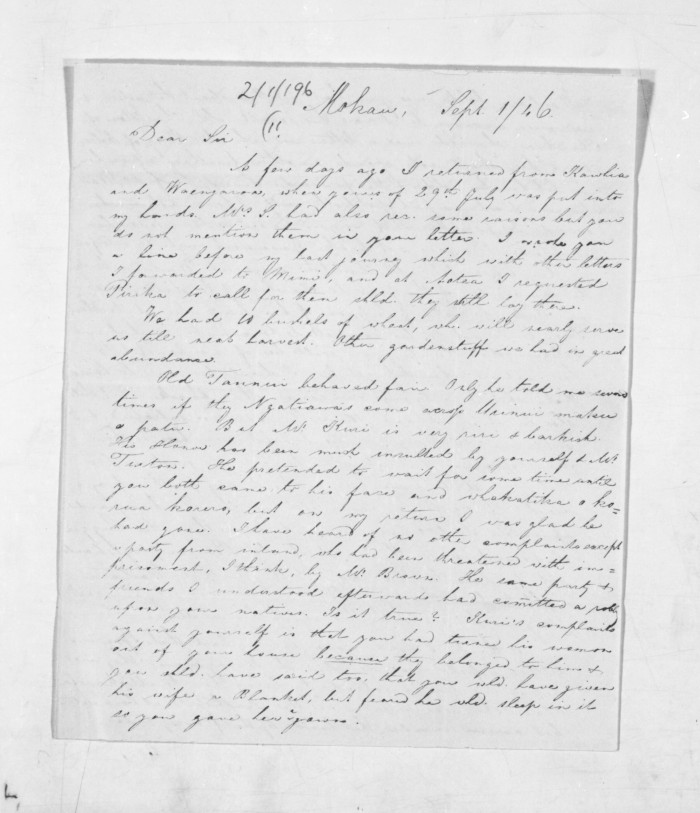 2/1/196
Mokau, Sept 1/46.
(11.
Dear Sir
A few days ago I returned from Kawhia
and Waengaroa, when yours of 29th July was put into
my hands. Mrs S. had also rec. some raisons but you
do not mention them in your letter. I wrote you
a line before my last journey which with other letters
I forwarded to Mimi, and at Aotea I requested
Pirika to call for them shld. they still lay there.
We had 10 bushels of wheat, wh. will nearly serve
us till next harvest. Other gardenstuff we had in great
abundance.
Old behaved fair Only he told me several
times if they Ngatiawas come across matou
e patu. But Mr Kuri is very riri & barkish.
His has been much insulted by yourself & Mr
He pretended to wait for some time until
you both came to his face and whakatika o ko=
rua korero, but on my return I was glad he
had gone. I have heard of no other complaints except
a party from inland, who had been threatened with im=
prisonment, I think, by Mr Brown. The same party &
friends I understood afterwards had comitted a
upon your natives. Is it true? Kuri's complaints
against yourself is that you had his woman
out of your house because they belonged to him &
you shld. have said too, that you wld. have given
his wife a Blanket, but feard he wld. sleep in it
so you gave her gown.